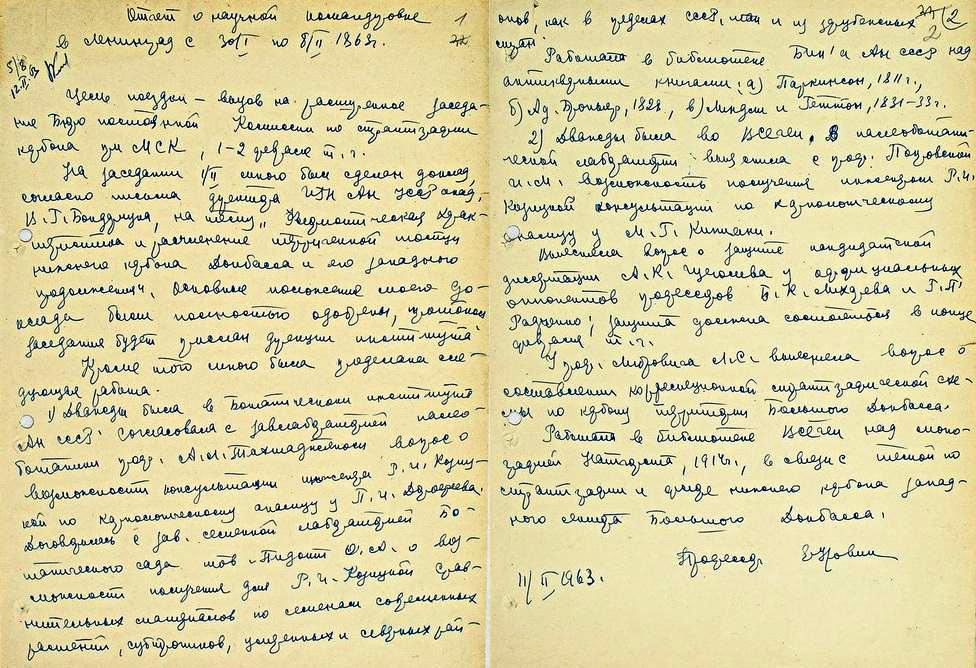 Отчет о научной командировке
в Ленинград с 30/I по 8/II 1963г.
1
5/8
12.II.63
Цель поездки – вызов на расширенное заседа-
ние Бюро постоянной Комиссии по стратиграфии
карбона при МСК, 1-2 февраля т.г.
На заседании 1/II мною был сделан доклад,
согласно письма дирекции ИГН АН УССР акад.
В.Г. Бондарчука, на тему „Фаунистическая харак-
теристика и расчленение терригенной толщи
нижнего карбона Донбасса и его западного
продолжения". Основные положения моего до-
клада были полностью одобрены, протокол
заседания будет прислан дирекции института.
Кроме того мною была проделана сле-
дующая работа.
1) Дважды была в Ботаническом институте
АН СССР. Согласовала с завлабораторией палео-
ботаники проф. А.Л. Тахтаджяном вопрос о
возможности консультации инженера Р.Ч. Козиц-
кой по карпологическому анализу у П.И. Дорофеева.
Договорилась с зав. семенной лабораторией Бо-
танического сада тов. Пидотти О.А. о воз-
можности получения для Р.Ч. Козицкой срав-
нительных материалов по семенам современных
растений, субтропиков, умеренных и северных рай-
2
2
онов, как в пределах СССР, так и из зарубежных
стран.
Работала в библиотеке Бин'а АН СССР над
антикварными книгами: а) Паркинсон, 1811г.,
б) Ад. Броньяр, 1828, в) Линдли и Геттон, 1831-33г.
2) Дважды была во ВСЕГЕИ. В палеоботани-
ческой лаборатории выяснила с проф. Покровской
И.М. возможность получения инженером Р.Ч.
Козицкой консультации по карпологическому
анализу у М.Г. Кипиани.
Выяснила вопрос о защите кандидатской
диссертации А.К. Щеголева у официальных
оппонентов профессоров Б.К. Лихарева и Г.П.
Радченко; защита должна состояться в конце
февраля т.г.
У проф. Либровича Л.С. выяснила вопрос о
составлении корреляционной стратиграфической схе-
мы по карбону территории Большого Донбасса.
Работала в библиотеке ВСЕГЕИ над моно-
графией Натгорст, 1914г., в связи с темой по
стратиграфии и флоре нижнего карбона запад-
ного сектора Большого Донбасса.
Профессор
11/II 1963.